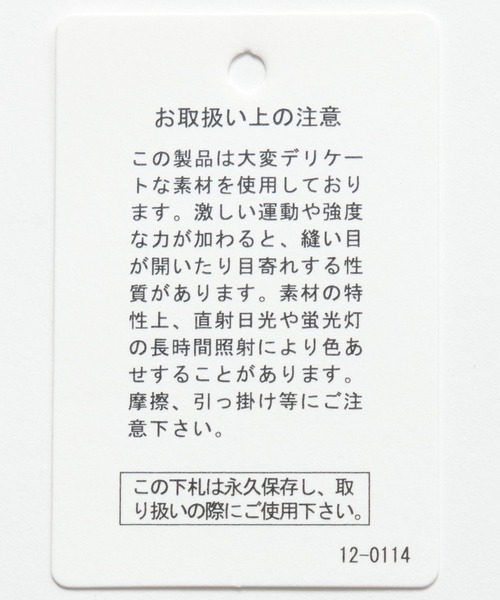 お取扱い上の注意
この製品は大変デリケー
トな素材を使用しており
ます。激しい運動や強度
な力が加わると、縫い目
が開いたり目寄れする性
質があります。素材の特
性上、直射日光や蛍光灯
の長時間照射により色あ
せすることがあります。
摩擦、引っ掛け等にご注
意下さい。
この下札は永久保存し、取
り扱いの際にご使用下さい。
12-0114